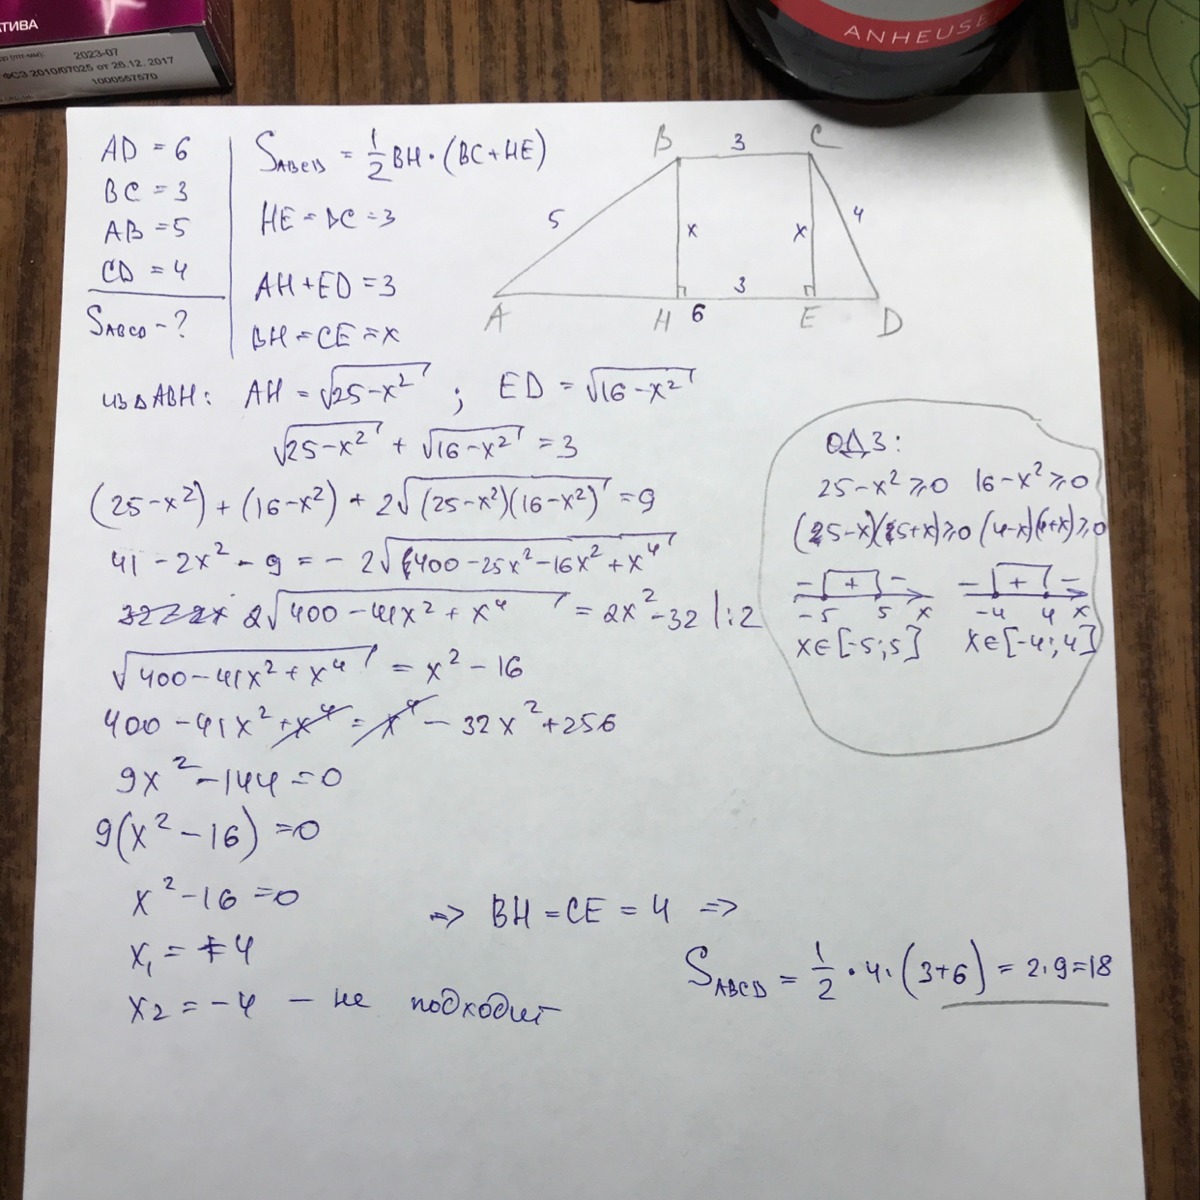 АТИВА
2023-07
ФСЗ 2010/07025 от 26.12.2017
1000557570
ANHEUSE
AD = 6
BC = 3
AB = 5
CD = 4
S_ABCD - ?
S_ABCD = 1/2 BH · (BC + HE)
HE = BC = 3
AH + ED = 3
BH = CE = x
B 3 C
5 x x 4
3
A H 6 E D
из △ABH: AH = √(25-x²) ; ED = √(16-x²)
√(25-x²) + √(16-x²) = 3
(25-x²) + (16-x²) + 2√((25-x²)(16-x²)) = 9
41 - 2x² - 9 = - 2√(400 - 25x² - 16x² + x⁴)
2√(400 - 41x² + x⁴) = 2x² - 32 |:2
√(400 - 41x² + x⁴) = x² - 16
400 - 41x² + x⁴ = x⁴ - 32x² + 256
9x² - 144 = 0
9(x² - 16) = 0
x² - 16 = 0
x₁ = +4
x2 = -4 - не подходит
ОДЗ:
25-x² ≥ 0 16-x² ≥ 0
(5-x)(5+x) ≥ 0 (4-x)(4+x) ≥ 0
- + - - + -
-5 5 x -4 4 x
x∈[-5;5] x∈[-4;4]
=> BH = CE = 4 =>
S_ABCD = 1/2 · 4 · (3+6) = 2·9 = 18